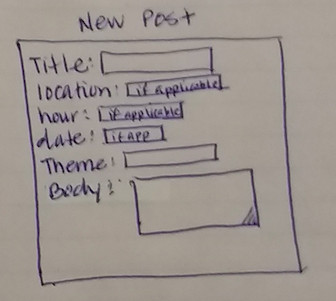 New Post
Title:
location: if applicable
hour: if applicable
date: if app
Theme:
Body: